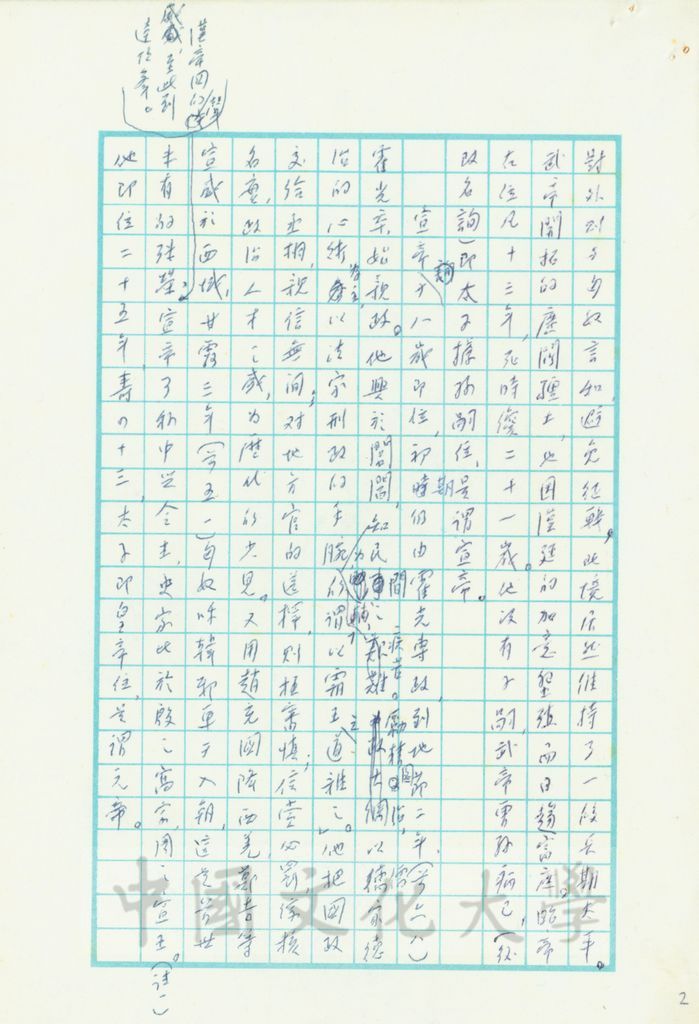 對外則与匈奴言和,避免征戰,此境居然維持了一段長期太平。
武帝開拓的廣闊疆土,也因漢廷的加意墾殖而日趨富庶。昭帝
在位凡十三年,死時纔二十一歲。他沒有子嗣,武帝曾孫病已,(後
改名詢)即太子據孫嗣位,是謂宣帝。
宣帝詢十八歲即位,初時期仍由霍光專政,到地節二年,(前六八)
霍光卒,始親政。他興於閭閻,知民間疾苦。勵精圖治,以儒家德
治的心術為主,以法家刑政的手腕為輔,所謂以霸王道雜之。他把國政
交給丞相,親信無間;对地方官的選擇,則極審慎;信賞必罰,綜核
名實,政治人才之盛,为歷代的少見。又用趙充國降西羌,鄭吉等
宣威於西域,甘露三年(前五一)匈奴呼韓邪單于入朝,這是前世
未有的殊榮。宣帝可称中兴令主,史家比於殷之高宗,周之宣王。(註一)
他即位二十五年,壽四十三,太子即皇帝位,是謂元帝。
漢帝國的聲
威,至此到
達頂峯。
中國文化大學
2